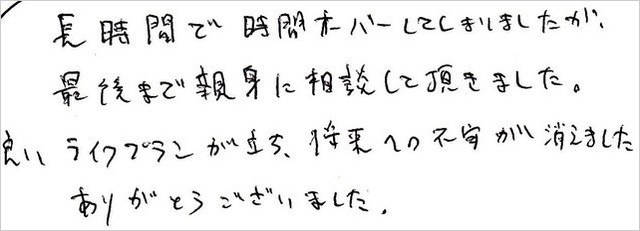 長時間で時間オーバーしてしまいましたが、
最後まで親身に相談して頂きました。
良い、ライフプランが立ち、将来への不安が消えました
ありがとうございました。